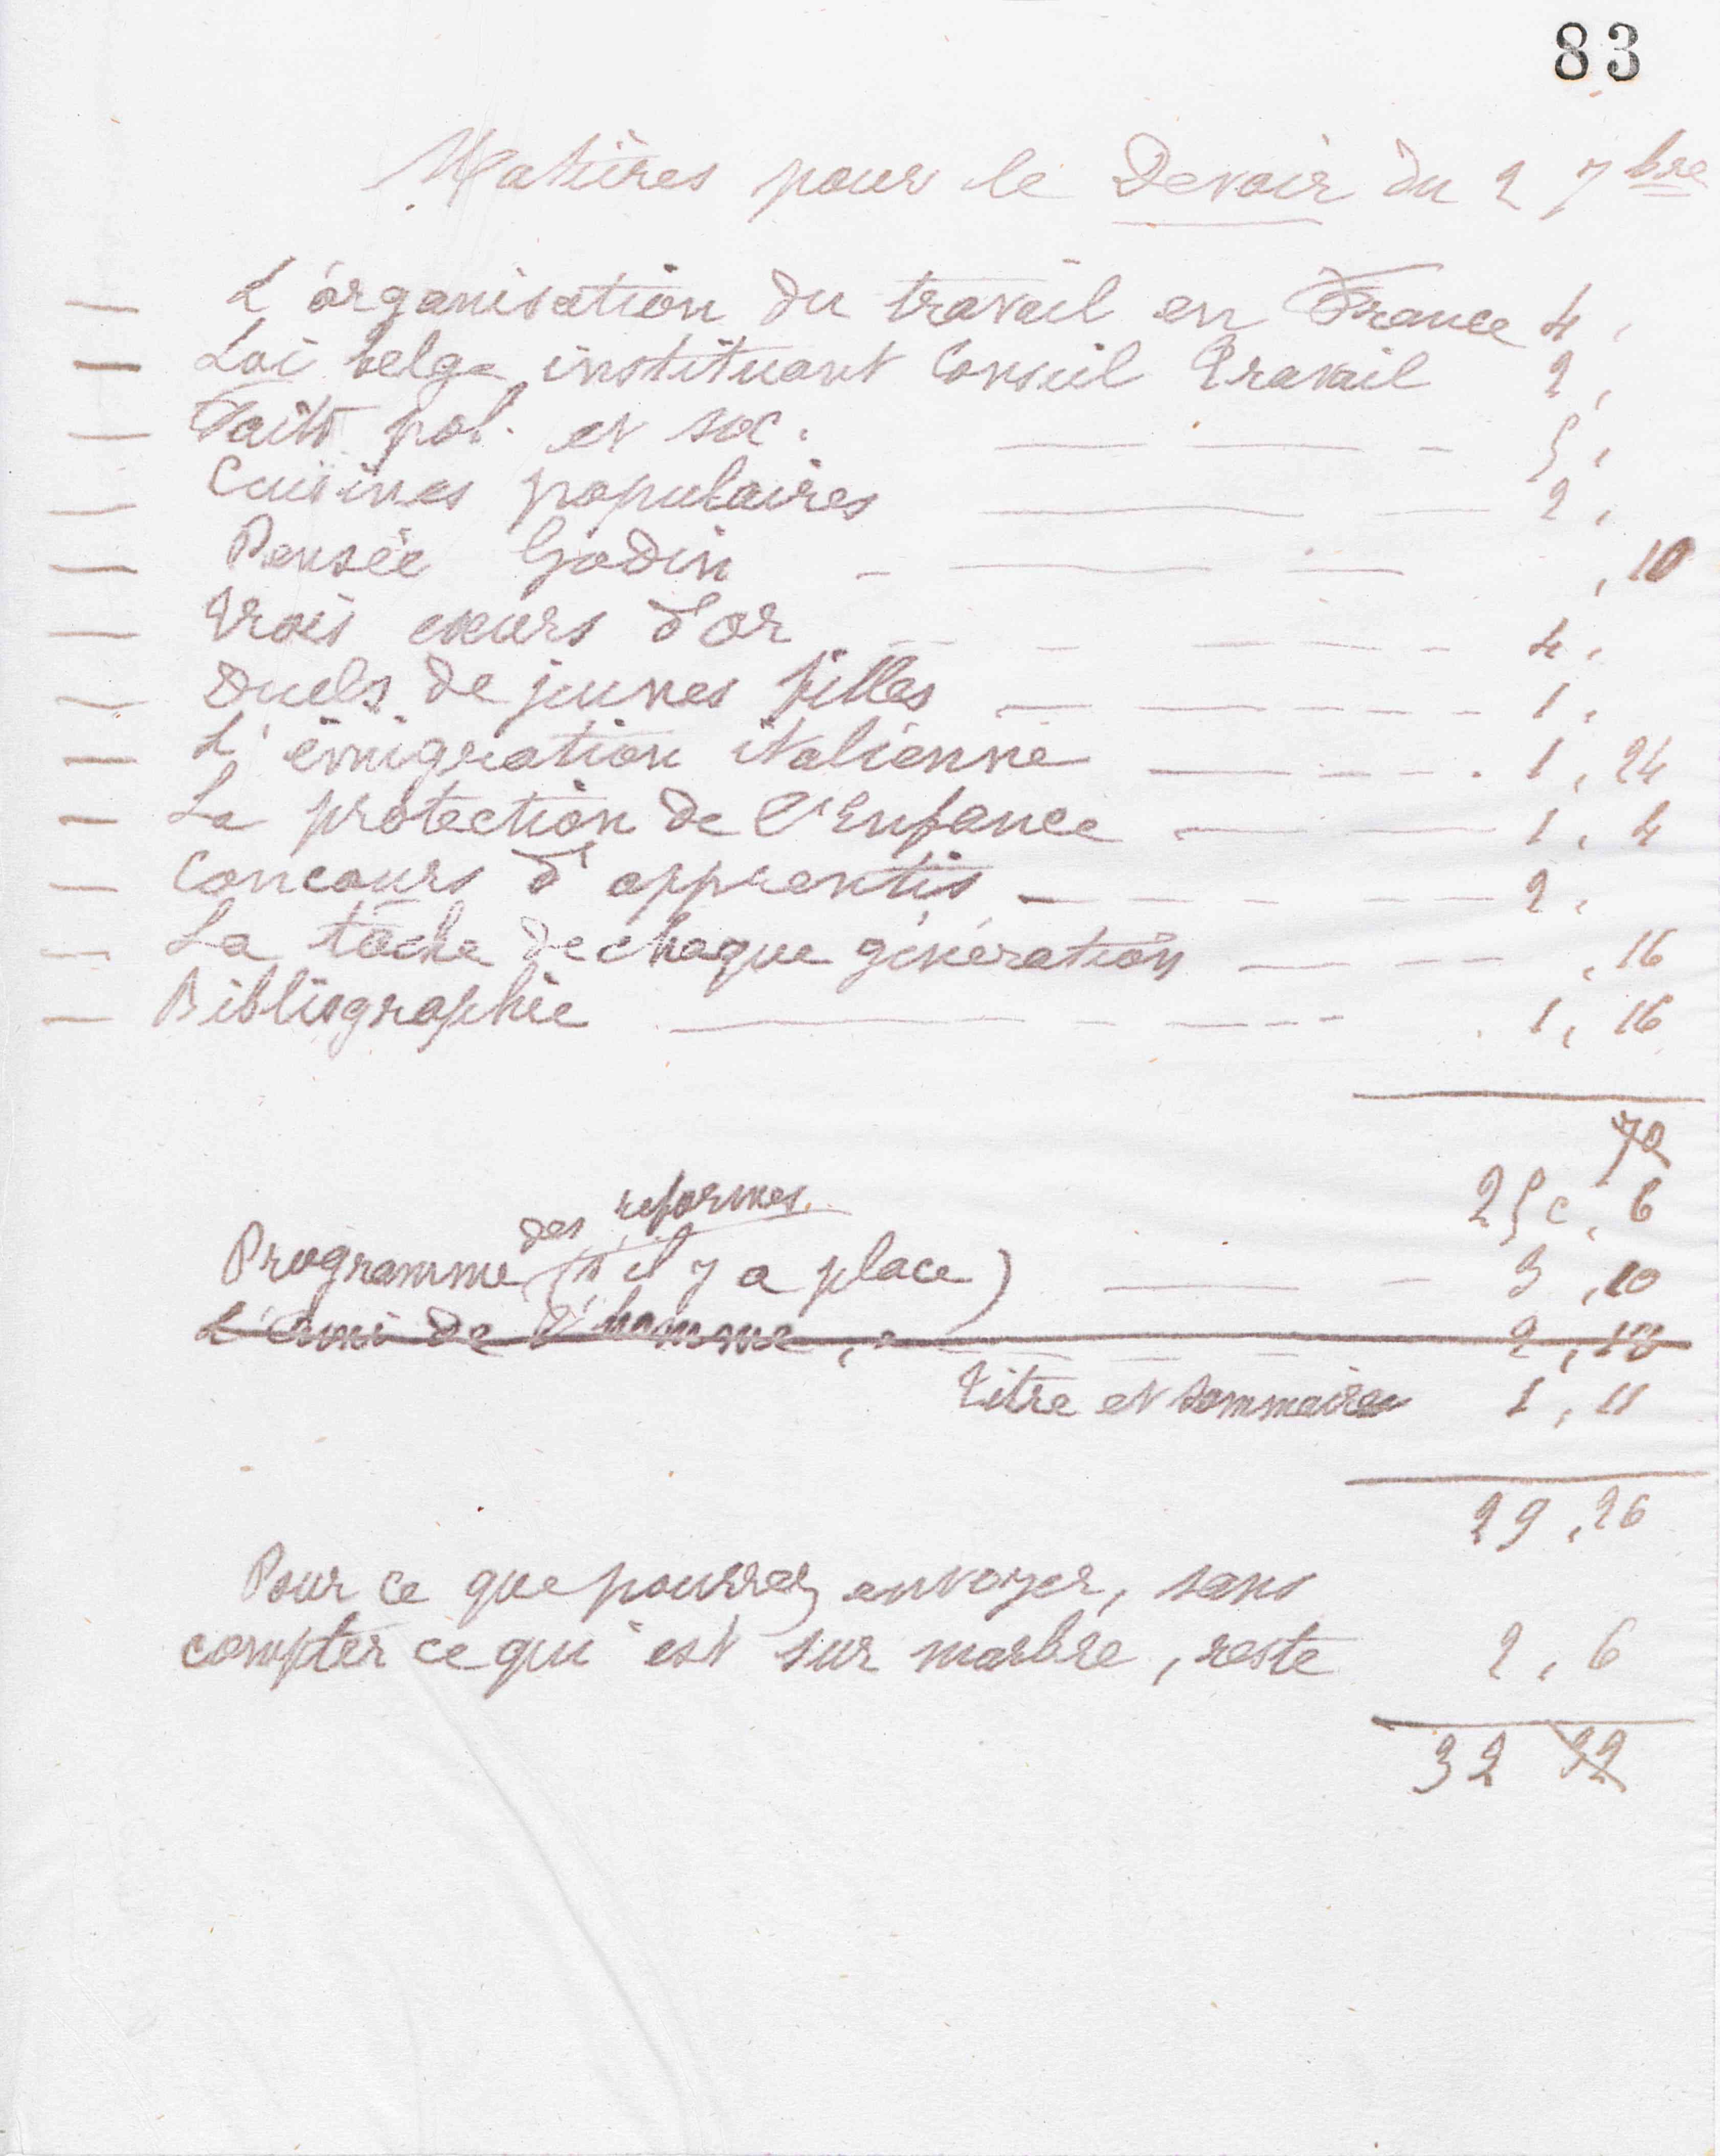 83
Matières pour le Devoir du 2 7bre
— L'organisation du travail en France 4,
— Loi belge instituant Conseil Travail 2,
— Faits pol. et soc. — — - 5,
— Cuisines populaires — — 2,
— Pensée Godin - — — ,10
— Trois cœurs d'or - - — - - 4,
— Duels de jeunes filles — — - - - 1,
— L'émigration italienne — - - - . 1,24
— La protection de l'Enfance — — 1,4
— Concours d'apprentis — - - - - — 2,
— La tâche de chaque génération — - - — ,16
— Bibliographie — - — - - - 1,16
72
25c,6
des réformes
Programme (s'il y a place) — - 3,10
L'ami de l'homme, - — — - 2,10
Titre et sommaire 1,11
29,26
Pour ce que pourrez envoyer, sans
compter ce qui est sur marbre, reste 2,6
32 32